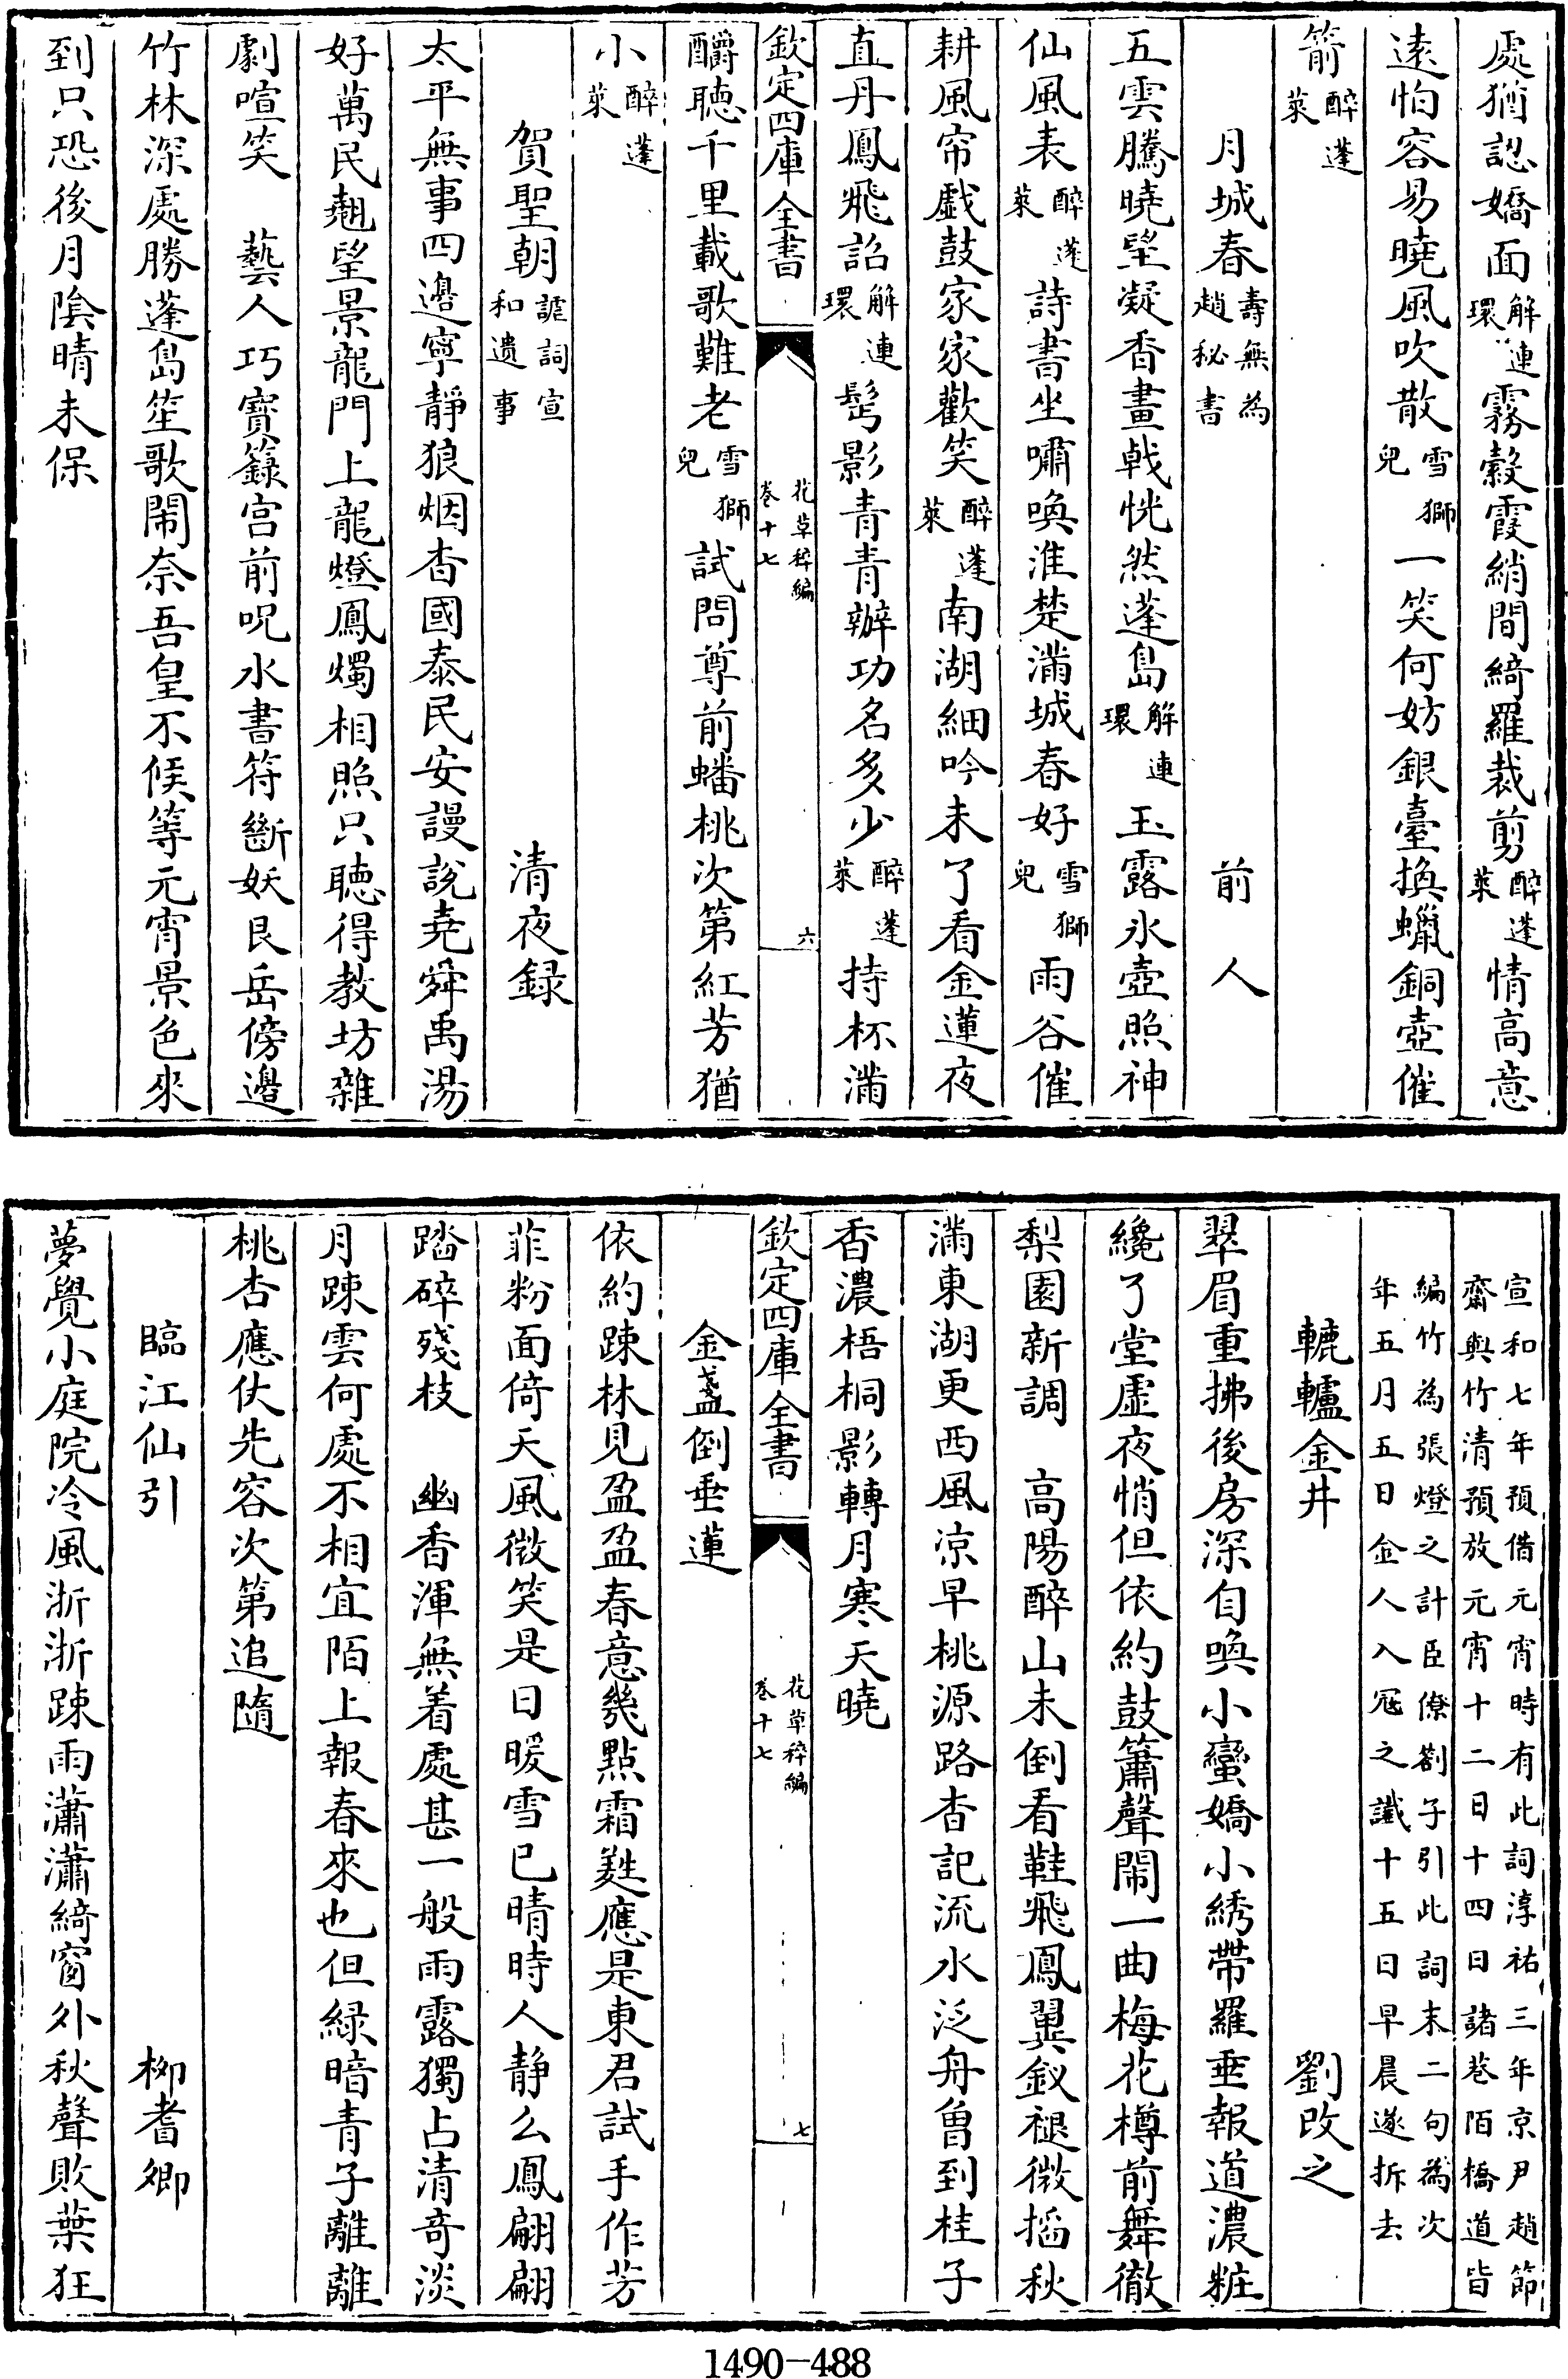 處猶認嬌面解連環霧縠霞綃間綺羅裁剪醉蓬萊情高意
遠怕容易曉風吹散雪獅兒一笑何妨銀臺換蠟銅壺催
箭醉蓬萊
月城春壽無為趙秘書 前人
五雲騰曉望凝香畫戟恍然蓬島解連環玉露氷壺照神
仙風表醉蓬萊詩書坐嘯喚淮楚滿城春好雪獅兒雨谷催
耕風帘戲鼓家家歡笑醉蓬萊南湖細吟未了看金蓮夜
直丹鳳飛詔解連環髩影青青辦功名多少醉蓬萊持杯滿
欽定四庫全書 花草稡編卷十七 六
釂聽千里載歌難老雪獅兒試問尊前蟠桃次第紅芳猶
小醉蓬萊
賀聖朝謔詞宣和遺事 清夜録
太平無事四邊寧靜狼烟杳國泰民安謾說堯舜禹湯
好萬民翹望景龍門上龍燈鳳燭相照只聽得教坊雜
劇喧笑 藝人巧寶籙宮前呪水書符斷妖艮岳傍邊
竹林深處勝蓬島笙歌鬧奈吾皇不候等元宵景色來
到只恐後月陰晴未保
宣和七年預借元宵時有此詞淳祐三年京尹趙節
齋與竹清預放元宵十二日十四日諸巷陌橋道皆
編竹為張燈之計臣僚劄子引此詞末二句為次
年五月五日金人入冦之讖十五日早晨遂拆去
轆轤金井 劉改之
翠眉重拂後房深自喚小蠻嬌小綉帶羅垂報道濃粧
纔了堂虛夜悄但依約鼓簫聲鬧一曲梅花樽前舞徹
梨園新調 高陽醉山未倒看鞋飛鳳翼釵褪微搯秋
滿東湖更西風凉早桃源路杳記流水泛舟曽到桂子
香濃梧桐影轉月寒天曉
欽定四庫全書 花草稡編卷十七 七
金盞倒垂蓮
依約踈林見盈盈春意幾點霜蕤應是東君試手作芳
菲粉面倚天風微笑是日暖雪已晴時人静么鳳翩翩
踏碎殘枝 幽香渾無着處甚一般雨露獨占清奇淡
月踈雲何處不相宜陌上報春來也但緑暗青子離離
桃杏應仗先容次第追隨
臨江仙引 栁耆卿
夢覺小庭院冷風淅淅踈雨瀟瀟綺窗外秋聲敗葉狂
1490-488